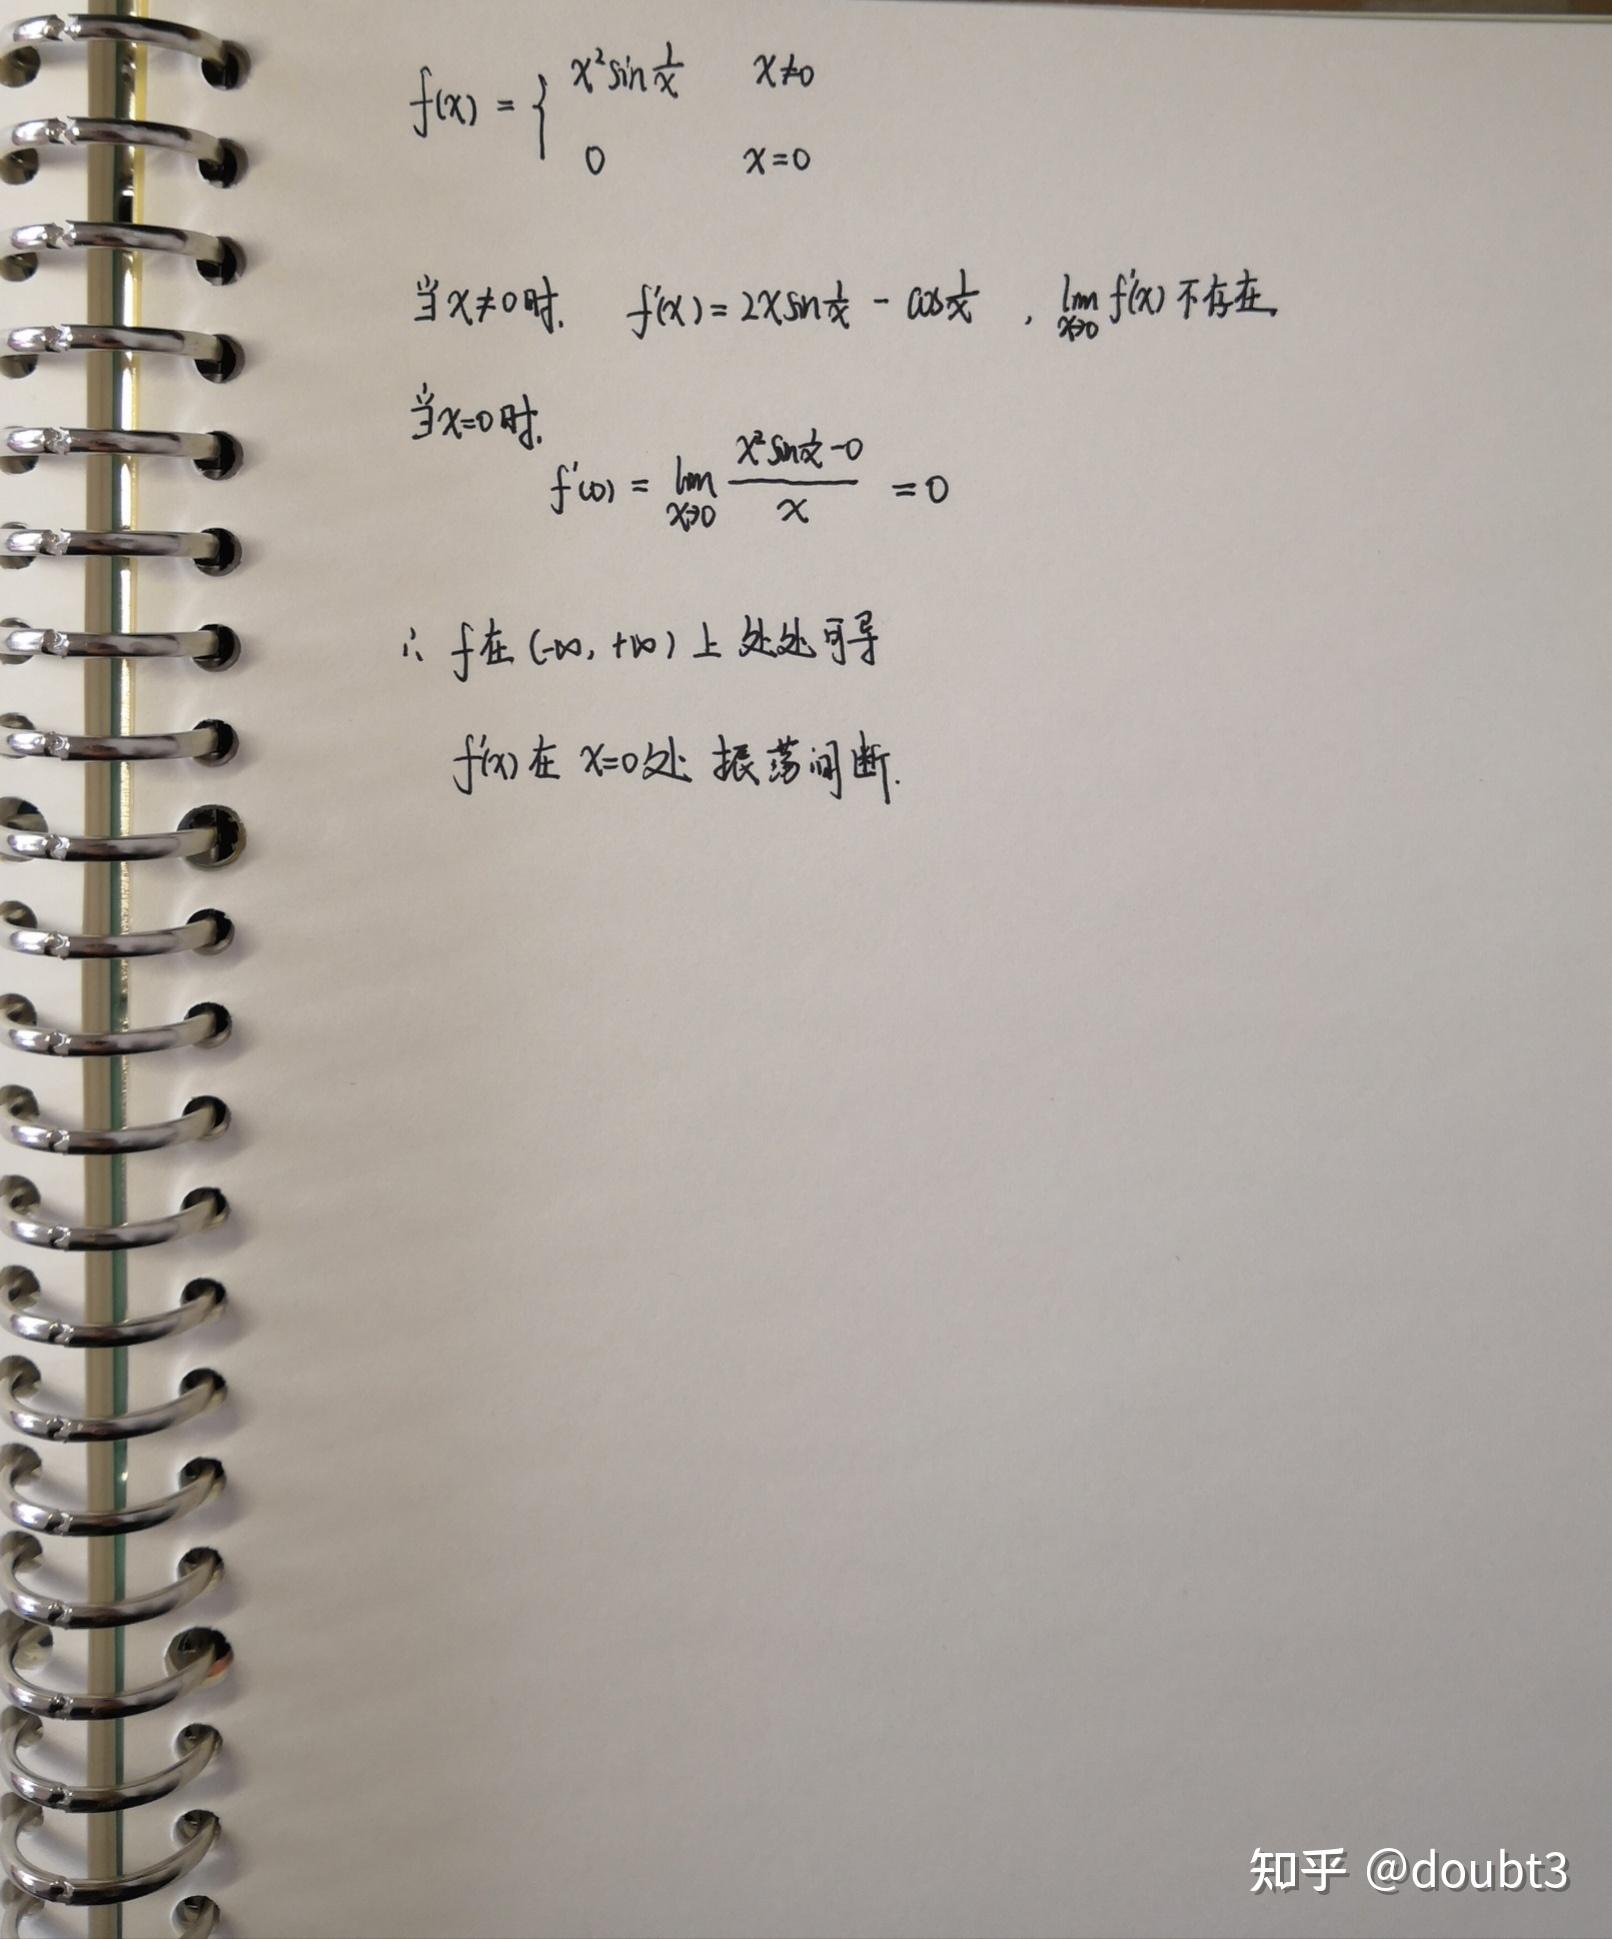 f(x) = { x² sin 1/x  x≠0
0  x=0
当x≠0时, f'(x) = 2x sin 1/x - cos 1/x , lim x→0 f'(x) 不存在.
当x=0时,
f'(0) = lim x→0 (x² sin 1/x - 0)/x = 0
∴ f在 (-∞, +∞) 上 处处可导
f'(x) 在 x=0处 振荡间断.
知乎 @doubt3